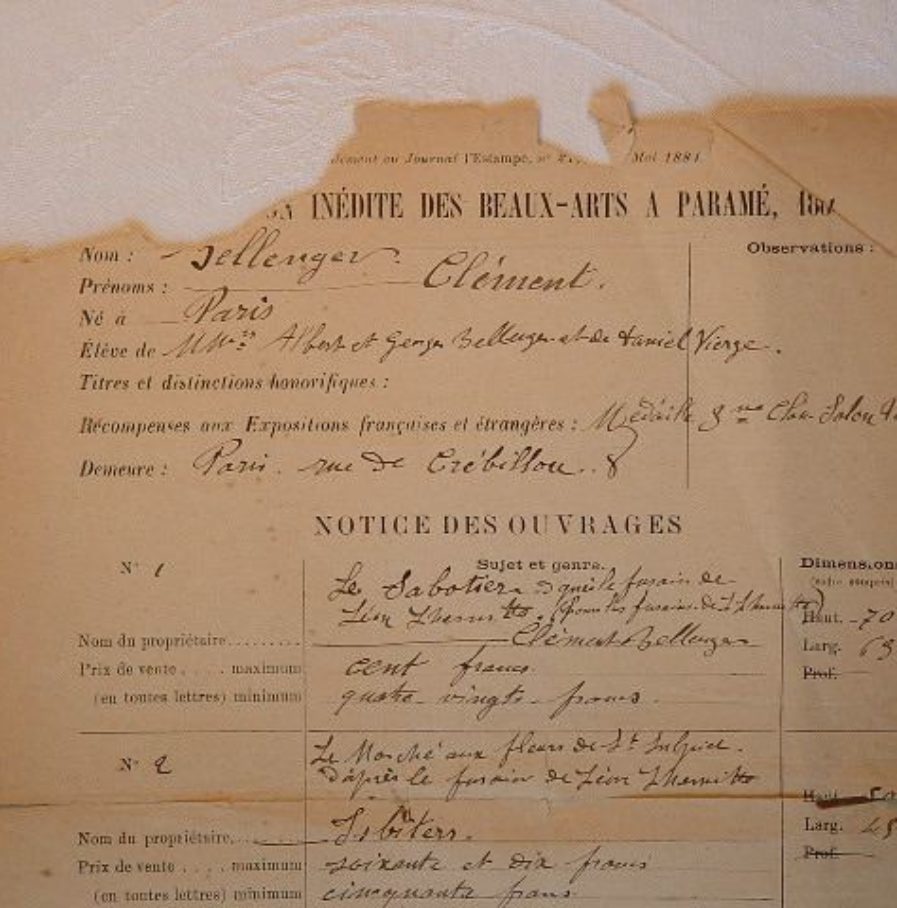 au Journal l'Estampe, Mai 1881
INÉDITE DES BEAUX-ARTS A PARAMÉ,
Nom : Bellenger Observations :
Prénoms : Clément.
Né à Paris
Élève de MM. Albert et Georges Bellenger et de Daniel Vierge.
Titres et distinctions honorifiques :
Récompenses aux Expositions françaises et étrangères : Médaille 3me Clas. Salon
Demeure : Paris. rue de Crébillon. 8
NOTICE DES OUVRAGES
N° 1 Sujet et genre. Dimensions
Le Sabotier d'après le fusain de
Léon Lhermitte. (pour les fusains de L. Lhermitte) Haut. 70
Nom du propriétaire......... Clément Bellenger Larg.
Prix de vente . . . . maximum cent francs Prof.
(en toutes lettres) minimum quatre-vingts-francs.
N° 2 Le Marché aux fleurs de St Sulpice.
D'après le fusain de Léon Lhermitte
Haut.
Nom du propriétaire. Larg.
Prix de vente . . . . maximum soixante et dix francs Prof.
(en toutes lettres) minimum cincquante frans